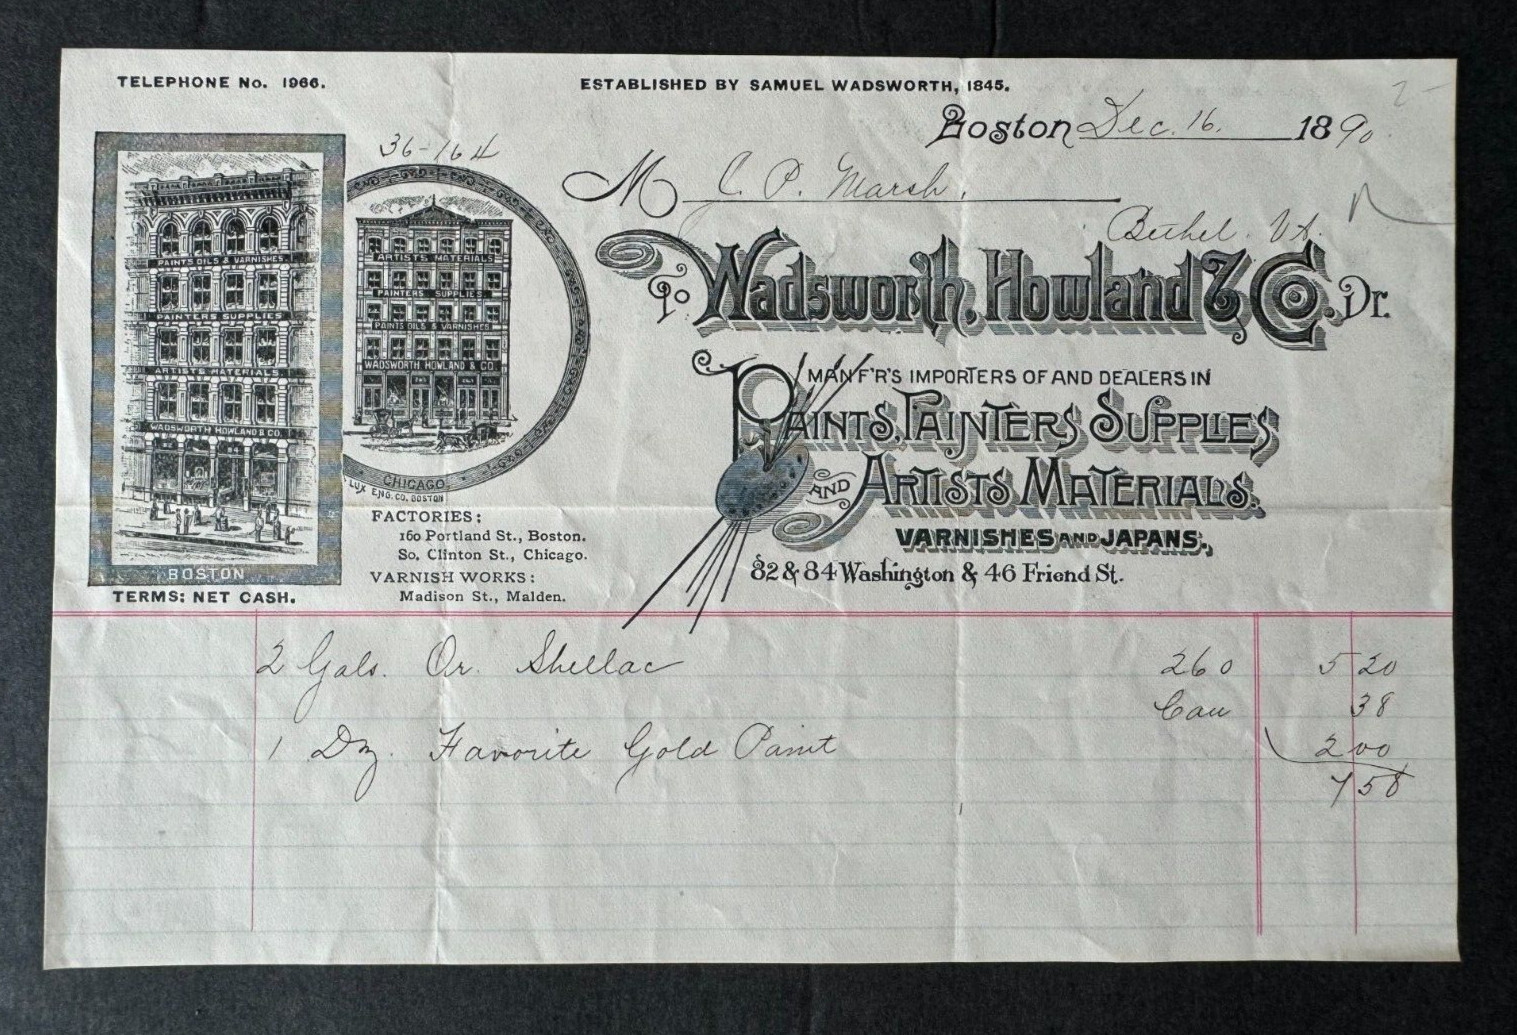 TELEPHONE No. 1966.
ESTABLISHED BY SAMUEL WADSWORTH, 1845.
2-
Boston Dec. 16. 1890
36-164
M J. P. Marsh.
Bethel. Vt.
To Wadsworth, Howland & Co. Dr.
MANF'R'S IMPORTERS OF AND DEALERS IN
PAINTS, PAINTERS SUPPLIES
AND ARTISTS MATERIALS.
VARNISHES AND JAPANS.,
82 & 84 Washington & 46 Friend St.
PAINTS OILS & VARNISHES.
PAINTERS SUPPLIES
ARTISTS MATERIALS
WADSWORTH HOWLAND & CO.
BOSTON
ARTISTS MATERIALS
PAINTERS SUPPLIES.
PAINTS OILS & VARNISHES
WADSWORTH HOWLAND & CO.
CHICAGO
LUX ENG. CO. BOSTON
FACTORIES:
160 Portland St., Boston.
So. Clinton St., Chicago.
VARNISH WORKS:
Madison St., Malden.
TERMS: NET CASH.
2 Gals. Or. Shellac 260 5 20
Can 38
1 Dz. Favorite Gold Paint 2 00
7 58